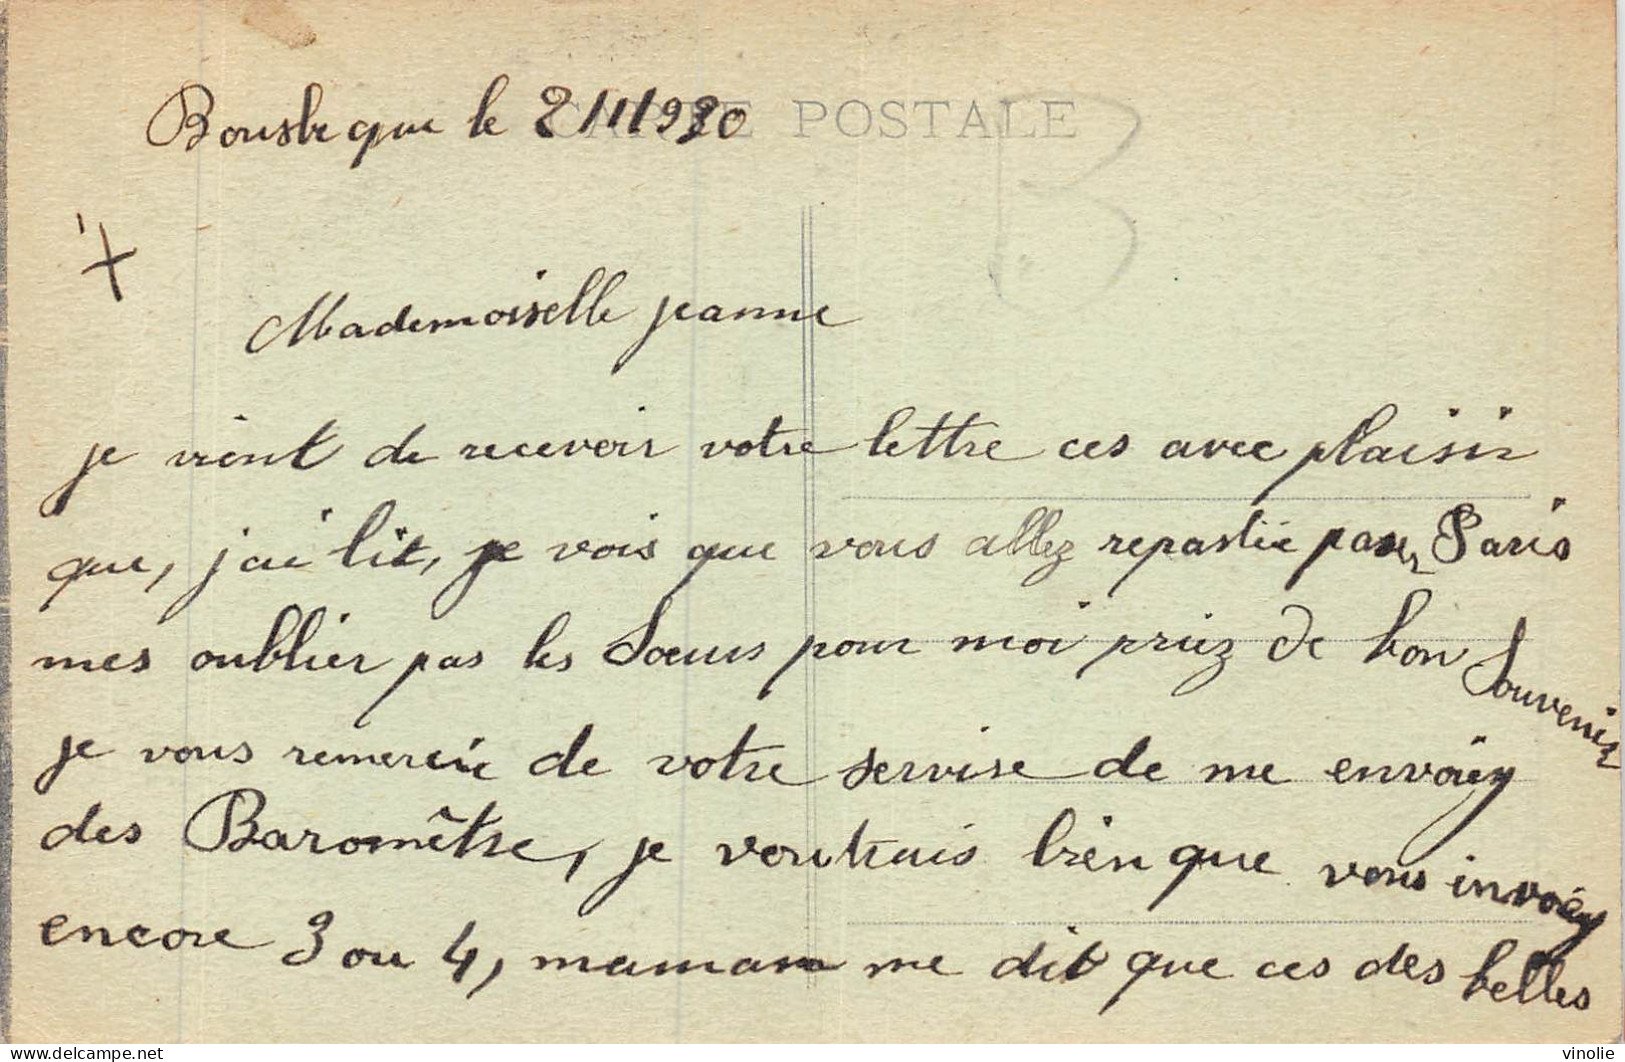 Bousbecque le 2/1/1920
CARTE POSTALE
B
Mademoiselle jeanne
je vient de recevoir votre lettre ces avec plaisir
que, j'ai lit, je vois que vous allez repastir par Paris
mes oublier pas les Soeurs pour moi priez de bon Souvenir
je vous remercie de votre servise de me envoiey
des Baromêtre, je voutrais bien que vous invoiey
encore 3 ou 4, maman me dit que ces des belles
delcampe.net
vinolie